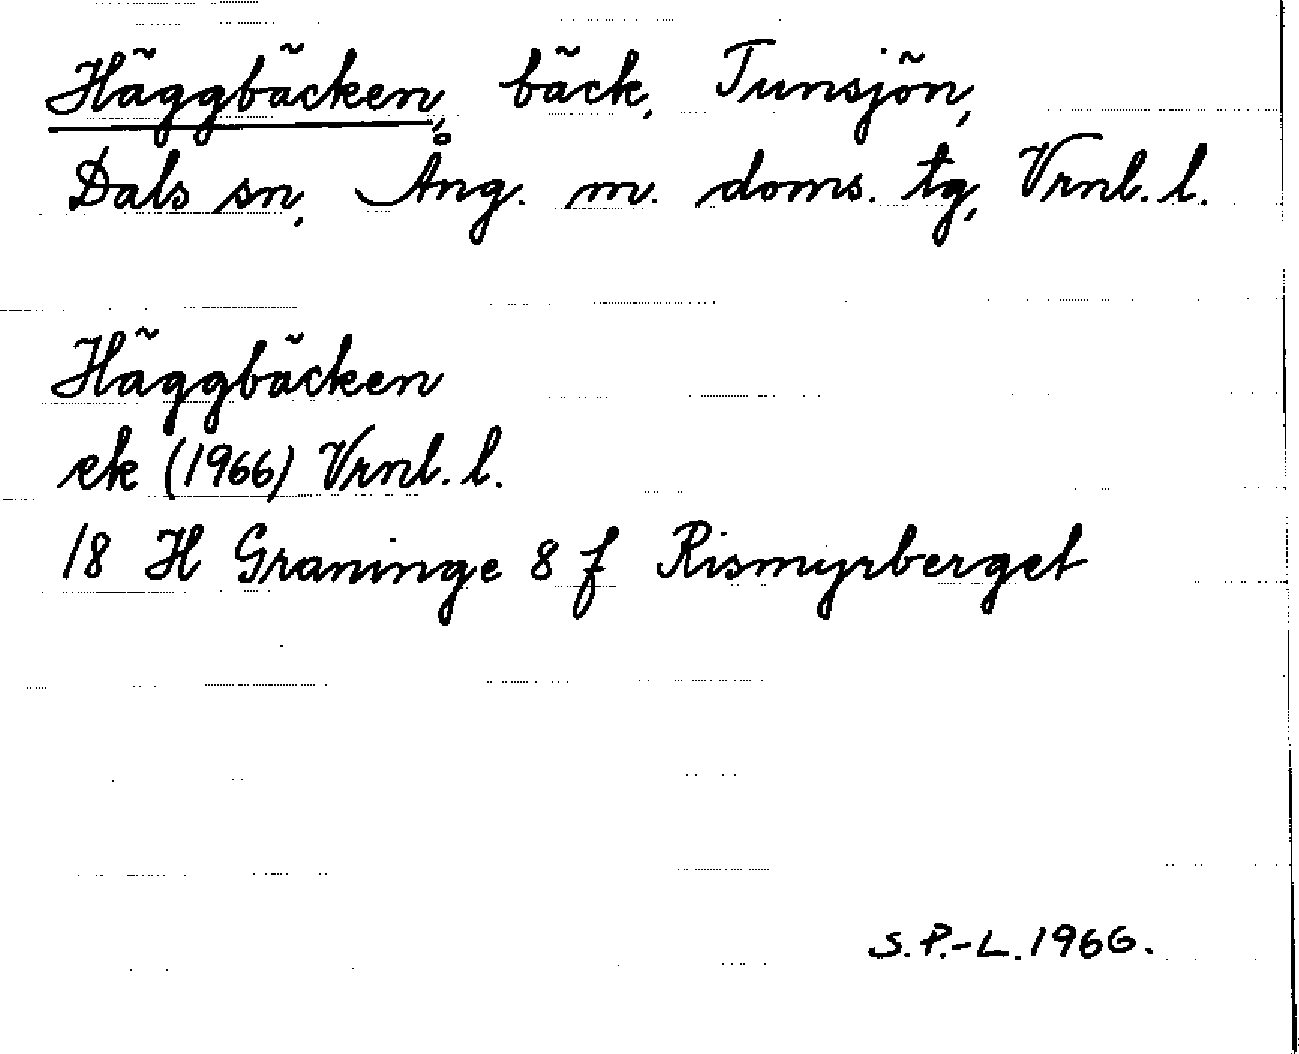 Häggbäcken, bäck, Tunsjön,
Dals sn, Ång. m. doms. tg, Vrnl. l.
Häggbäcken
ek (1966) Vrnl. l.
18 H Graninge 8 f Rismyrberget
S.P.-L. 1966.